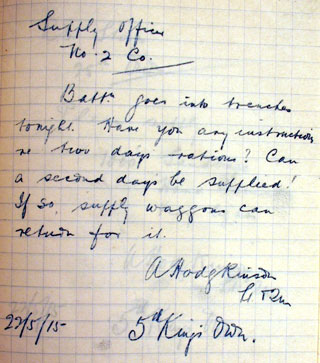 Supply Office
No. 2 Co.
Battn goes into trenches
tonight. Have you any instructions
re two days rations? Can
a second days be supplied!
If so, supply waggons can
return for it.
A Hodgkinson
Lt & Qm
22/5/15
5th Kings Own.